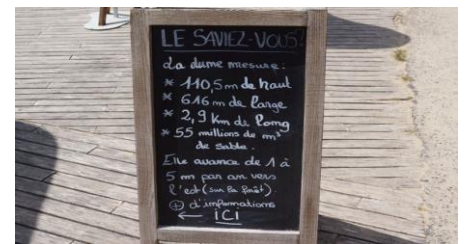 LE SAVIEZ-VOUS!
La dune mesure:
* 110,5 m de haut
* 616 m de large
* 2,9 Km de long
* 55 millions de m³
de sable.
Elle avance de 1 à
5 m par an vers
l'est (sur la forêt).
⊕ d'informations
← ICI